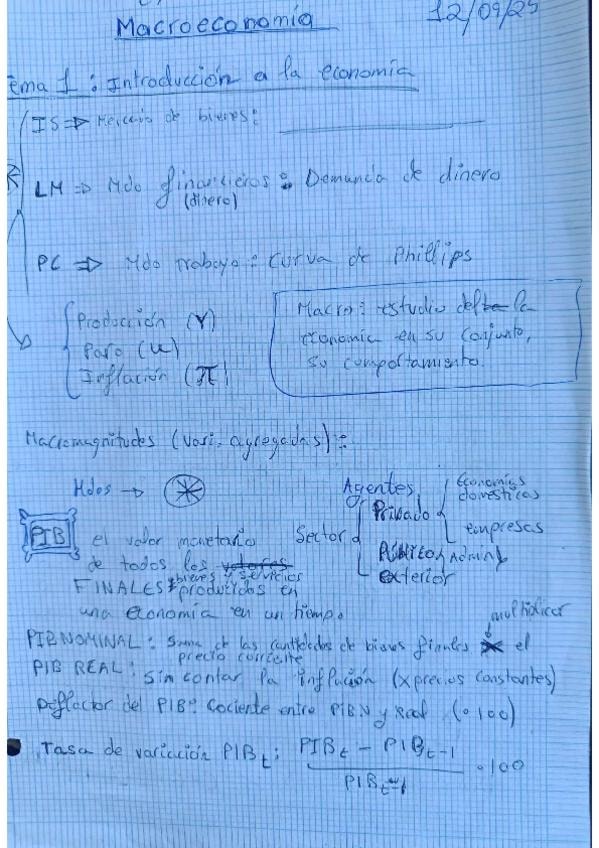 Macroeconomía 12/09/25
ema 1 : Introducción a la economía
IS => Mercado de bienes:
LM => Mdo financieros : Demanda de dinero
(dinero)
PC => Mdo trabajo : Curva de Phillips
Producción (Y)
Paro (u)
Inflación (π)
Macro : estudio de la
economía en su conjunto,
su comportamiento.
Macromagnitudes (vari. agregadas) :
Mdos →
Agentes
Sector
Privado
Economías
domésticas
empresas
Público
Admin
exterior
PIB el valor monetario
de todos los valores
bienes y servicios
FINALES producidos en
una economía en un tiempo.
multiplicar
PIB NOMINAL : Suma de las cantidades de bienes finales x el
precio corriente
PIB REAL : sin contar la inflación (x precios constantes)
Deflactor del PIB : Cociente entre PIBN y Real (· 100)
Tasa de variación PIBt : PIBt - PIBt-1 / PIBt-1 · 100